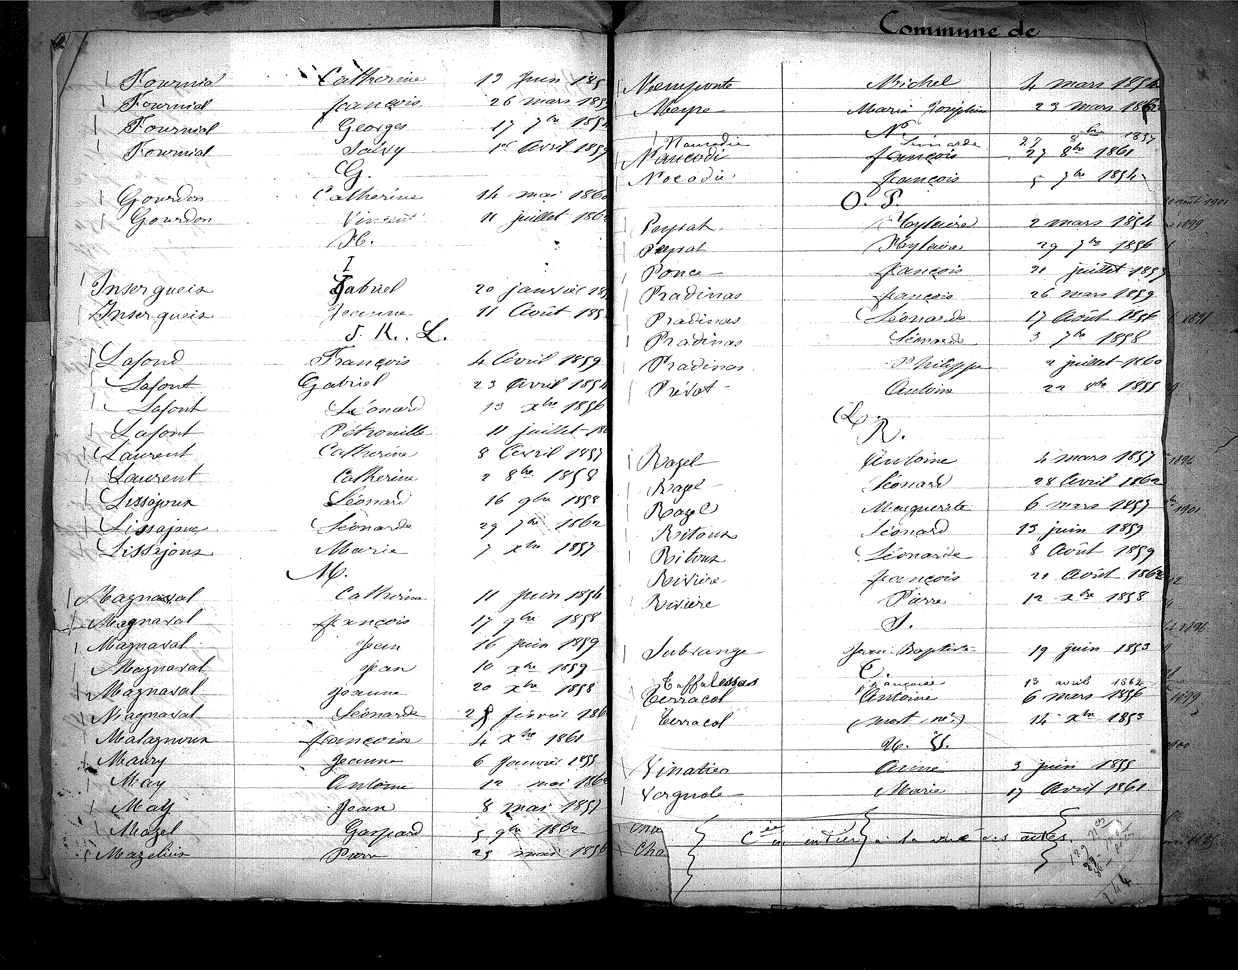 Fournial Catherine 13 Juin 185
Fournial françois 26 mars 185
Fournial Georges 17 7bre 1854
Fournial Salvy 1er Avril 1859
G.
Gourdon Catherine 14 mai 1860
Gourdon Vincent 11 juillet 1862
H.
I
Insergueix Gabriel 20 janvier 18
Insergueix Jeanne 11 Août 185
J. K. L.
Lafond François 4 Avril 1859
Lafont Gabriel 23 Avril 1854
Lafont Léonard 13 xbre 1856
Lafont Pétronille 11 juillet 18
Laurent Catherine 8 Avril 1857
Laurent Catherine 2 8bre 1858
Lissajoux Léonard 16 9bre 1858
Lissajoux Léonarde 29 7bre 1862
Lissajoux Marie 7 xbre 1857
M.
Magnaval Catherine 11 juin 1854
Magnaval françois 17 9bre 1858
Magnaval Jean 16 juin 1859
Magnaval Jean 10 xbre 1859
Magnaval Jeanne 20 xbre 1858
Magnaval Léonarde 28 février 186
Malagnoux françoise 4 xbre 1861
Maury Jeanne 6 Janvier 1855
May Antoine 12 mai 1862
May Jean 8 mai 1857
Mazel Gaspard 5 9bre 1862
Mazelier Pierre 25 mai 1856
Commune de
Memponte Michel 4 mars 1854
Meyre Marie Joséphine 23 mars 1862
N.
Naucodie Léonarde 29 8bre 1857
Naucodie françois 27 8bre 1861
Nocodie françois 5 7bre 1854
O. P.
Peyrat Hylaire 2 mars 1854
Peyrat Hylaire 29 7bre 1856
Ponce françois 21 juillet 1857
Pradinas françois 26 mars 1859
Pradinas Léonarde 17 Août 1856
Pradinas Léonarde 3 7bre 1858
Pradinas Philippe 2 juillet 1860
Privat Antoine 22 8bre 1855
Q.
R.
Ragel Antoine 4 mars 1857
Ragel Léonard 28 Avril 1862
Ragel Marguerite 6 mars 1857
Ritoux Léonard 13 juin 1859
Ritoux Léonarde 8 Août 1859
Rivière françois 21 Août 1862
Rivière Pierre 12 xbre 1858
S.
Subrange Jean-Baptiste 19 juin 1853
T.
Taffalessas françoise 13 avril 1862
Terracol Antoine 6 mars 1856
Terracol (mort né) 14 xbre 1853
U. V.
Vinatier Anne 3 juin 1855
Vergnole Marie 17 Avril 1861
à la des actes